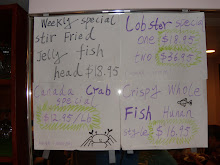 Weekly special
stir Fried
Jelly fish
head $18.95
Canada Crab
special
$12.95/Lb
Lobster special
one $18.95
two $36.95
Crispy Whole
Fish Hunan
style $16.95